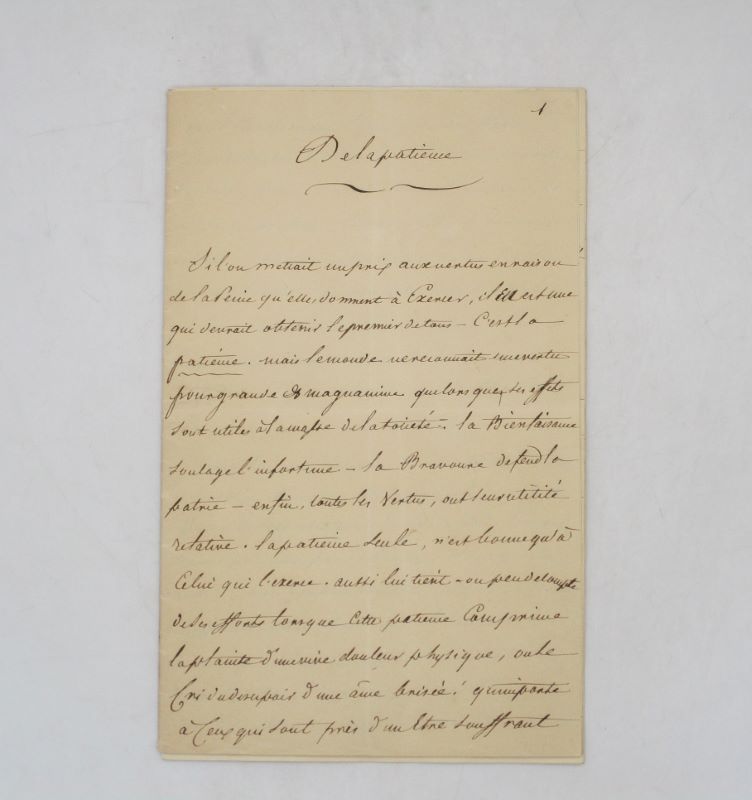 1
De la patience
Si l'on mettait un prix aux vertus en raison
de la Peine qu'elles donnent à Exercer, il en est une
qui devrait obtenir le premier de tous – C'est la
patience. mais le monde ne reconnait une vertu
pour grande & magnanime que lorsque ses effets
sont utiles à la masse de la société – la Bienfaisance
soulage l'infortune – la Bravoure defend la
patrie – enfin, toutes les Vertus, ont leur utilité
relative. la patience seule, n'est bonne qu'à
Celui qui l'exerce. aussi lui tient-on peu de compte
de ses efforts lorsque Cette patience Comprime
la plainte d'une vive douleur physique, ou le
Cri du desespoir d'une âme brisée! qu'importe
à Ceux qui sont près d'un Etre souffrant